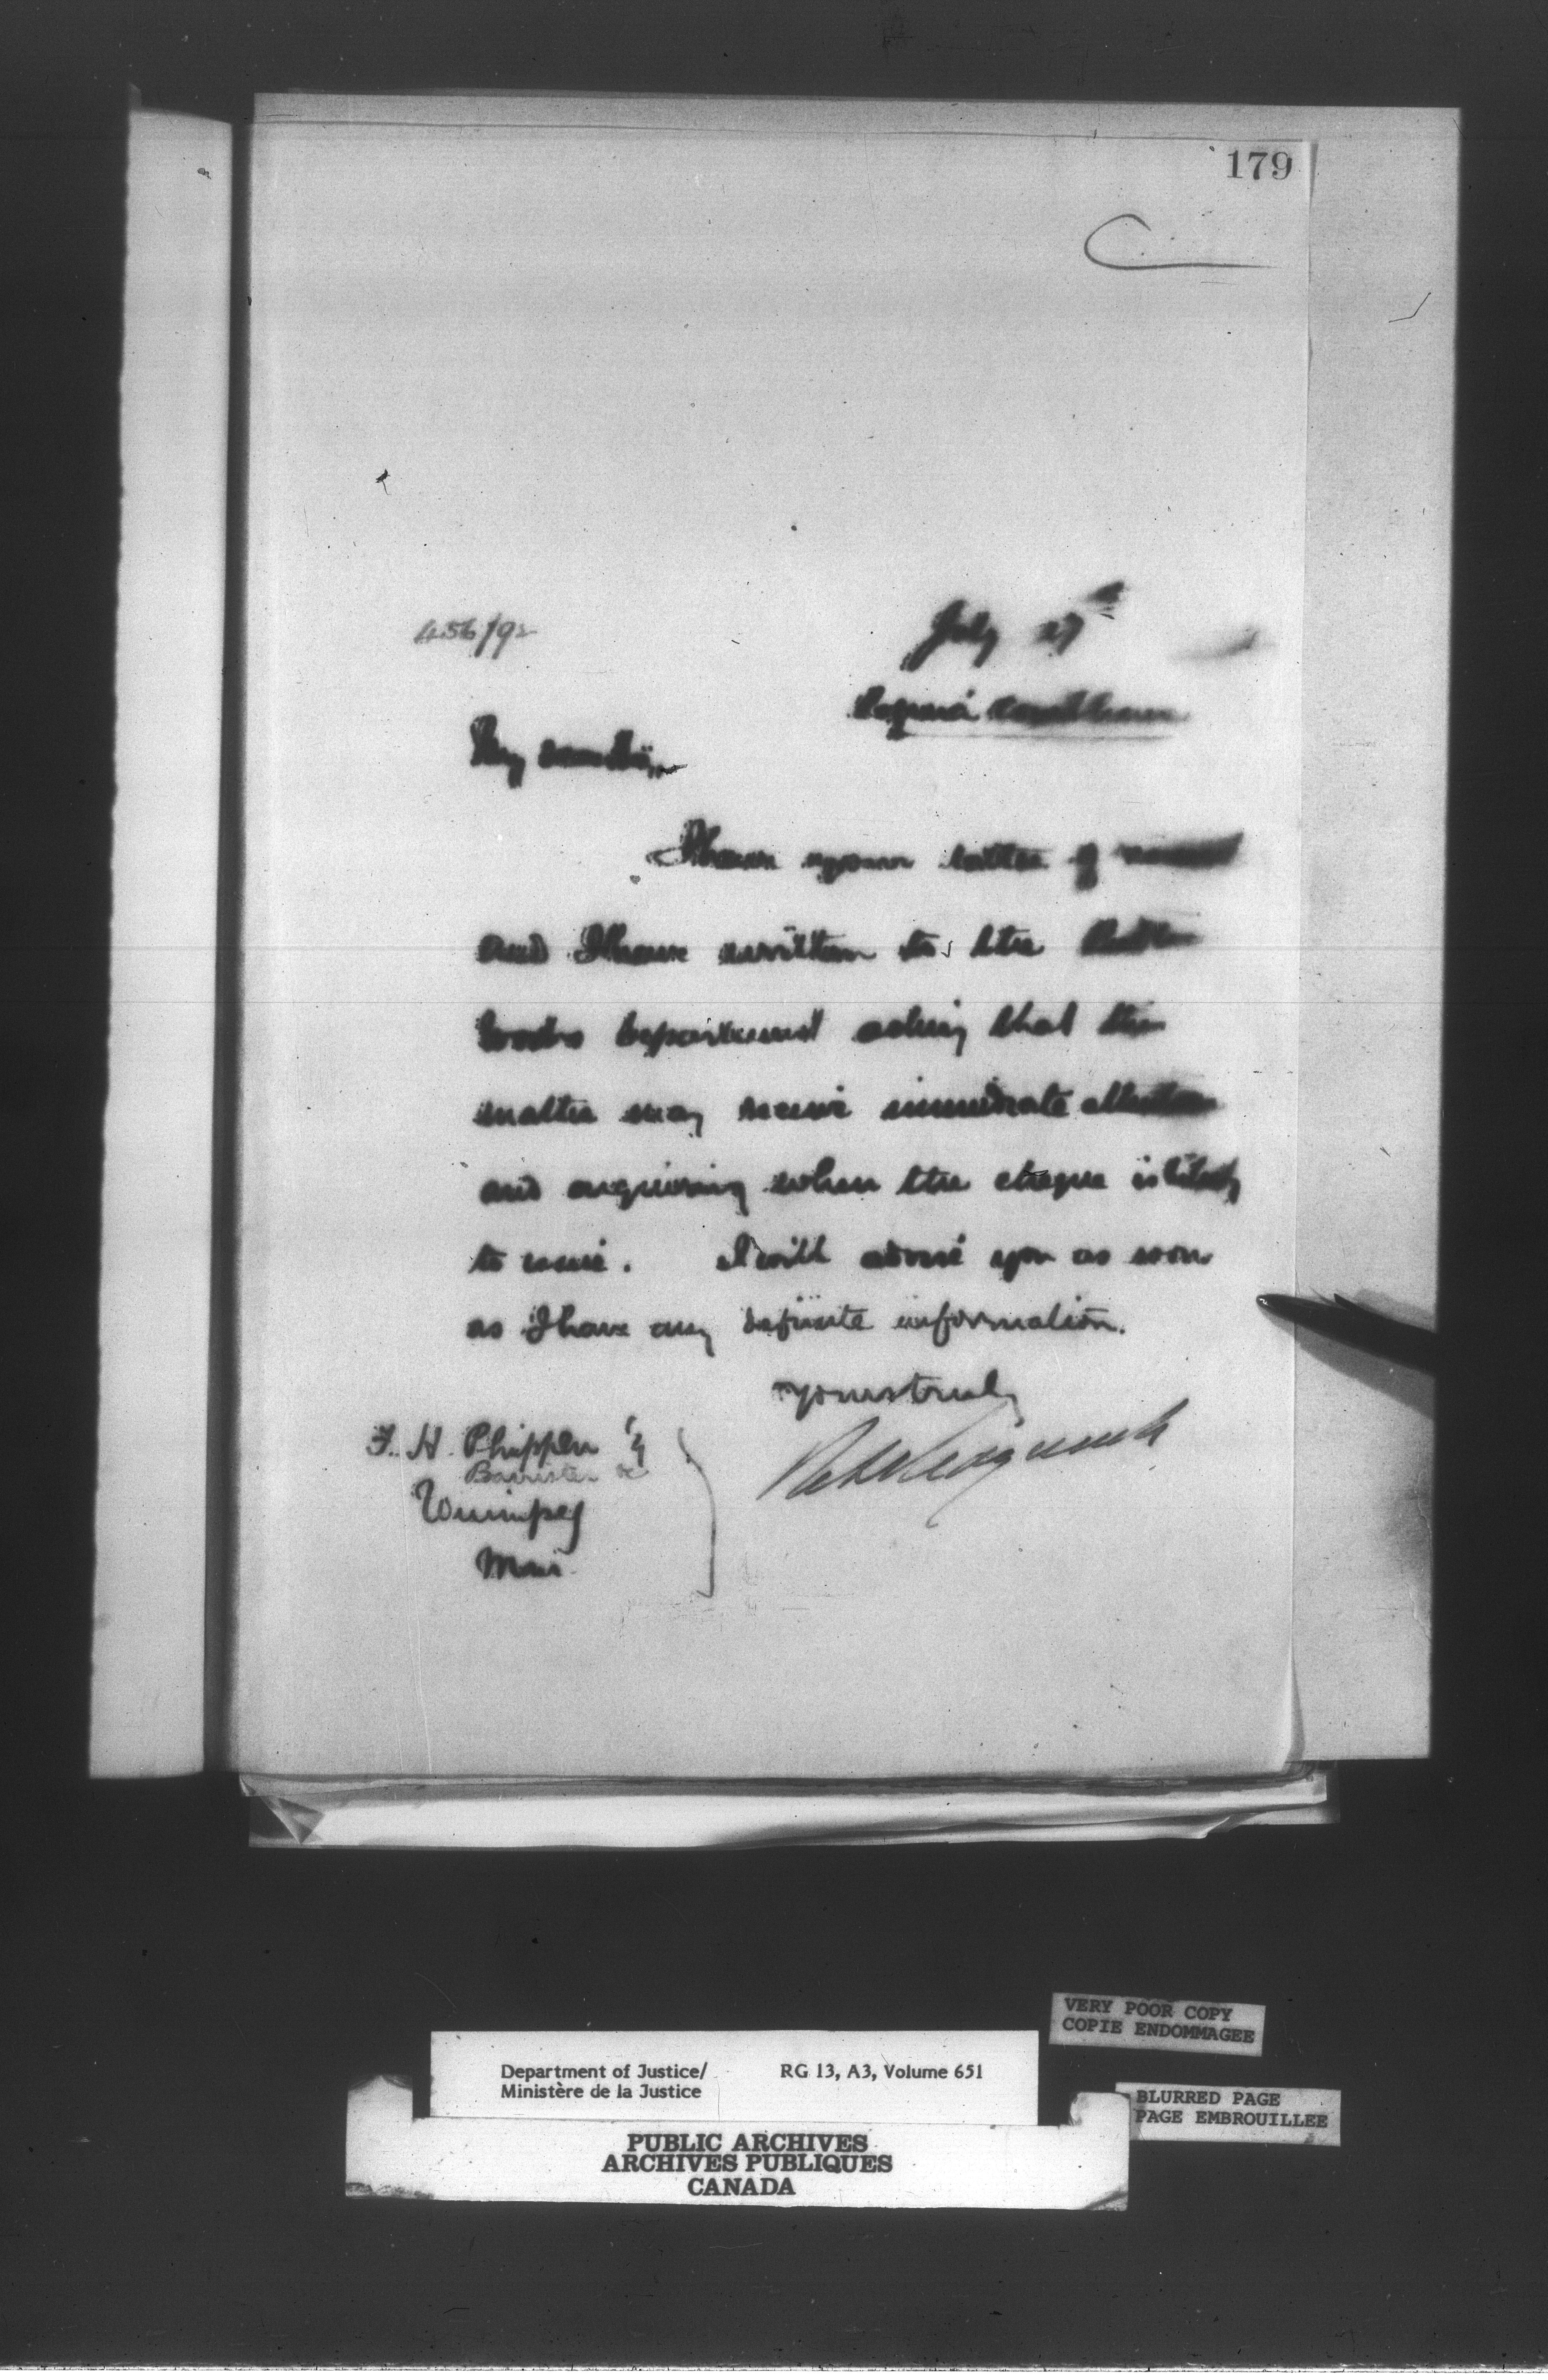 179
C
456/92
July 27th
My dear Sir,
I have your letter of
and I have written to the
Works Department asking that the
matter may receive immediate attention
and enquiring when the cheque is likely
to issue. I will advise you as soon
as I have any definite information.
Yours truly
F. H. Phippen
Barrister &c
Winnipeg
Man.
VERY POOR COPY
COPIE ENDOMMAGEE
Department of Justice/ RG 13, A3, Volume 651
Ministère de la Justice
BLURRED PAGE
PAGE EMBROUILLEE
PUBLIC ARCHIVES
ARCHIVES PUBLIQUES
CANADA